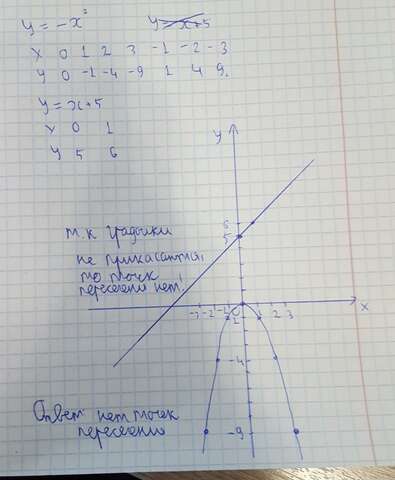 y = -x² y = x+5
x 0 1 2 3 -1 -2 -3
y 0 -1 -4 -9 1 4 9.
y = x+5
x 0 1
y 5 6
y
6
5
т.к графики
не прикасаются,
то точек
пересечени нет!
-3 -2 -1 0 1 2 3 x
-4
Ответ нет точек
пересечения
-9